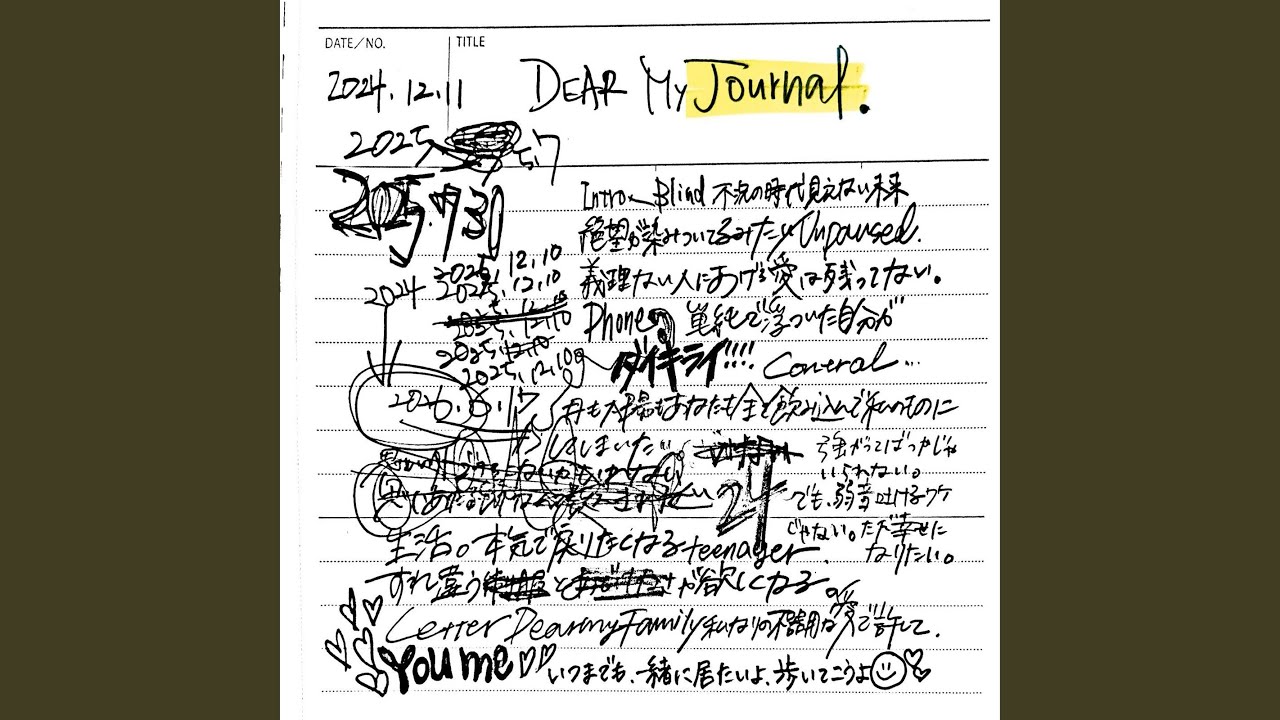 DATE/NO.
TITLE
2024.12.11
DEAR My Journal.
2025
5.7
2025.7.30
Intro Blind 不況の時代見えない未来
絶望が染みついてるみたい Unpaused.
義理ない人にあげる愛は残ってない。
Phone 単純で浮ついた自分が
ダイキライ!!!! Control...
2025.12.10
2025.12.10
2025.12.10
2025.12.10
2025.12.10
2024
2026.6.17
月も太陽もあなたも全て飲み込んで私のものに
してしまいたい
強がってばっかじゃ
いられない。
でも、弱音吐けるワケ
じゃない。ただ幸せに
なりたい。
24
生活。本気で戻りたくなる teenager.
すれ違う と が欲しくなる。
Letter Dearmy Family 私なりの不器用な愛で許して.
You me いつまでも、一緒に居たいよ、歩いてこうよ